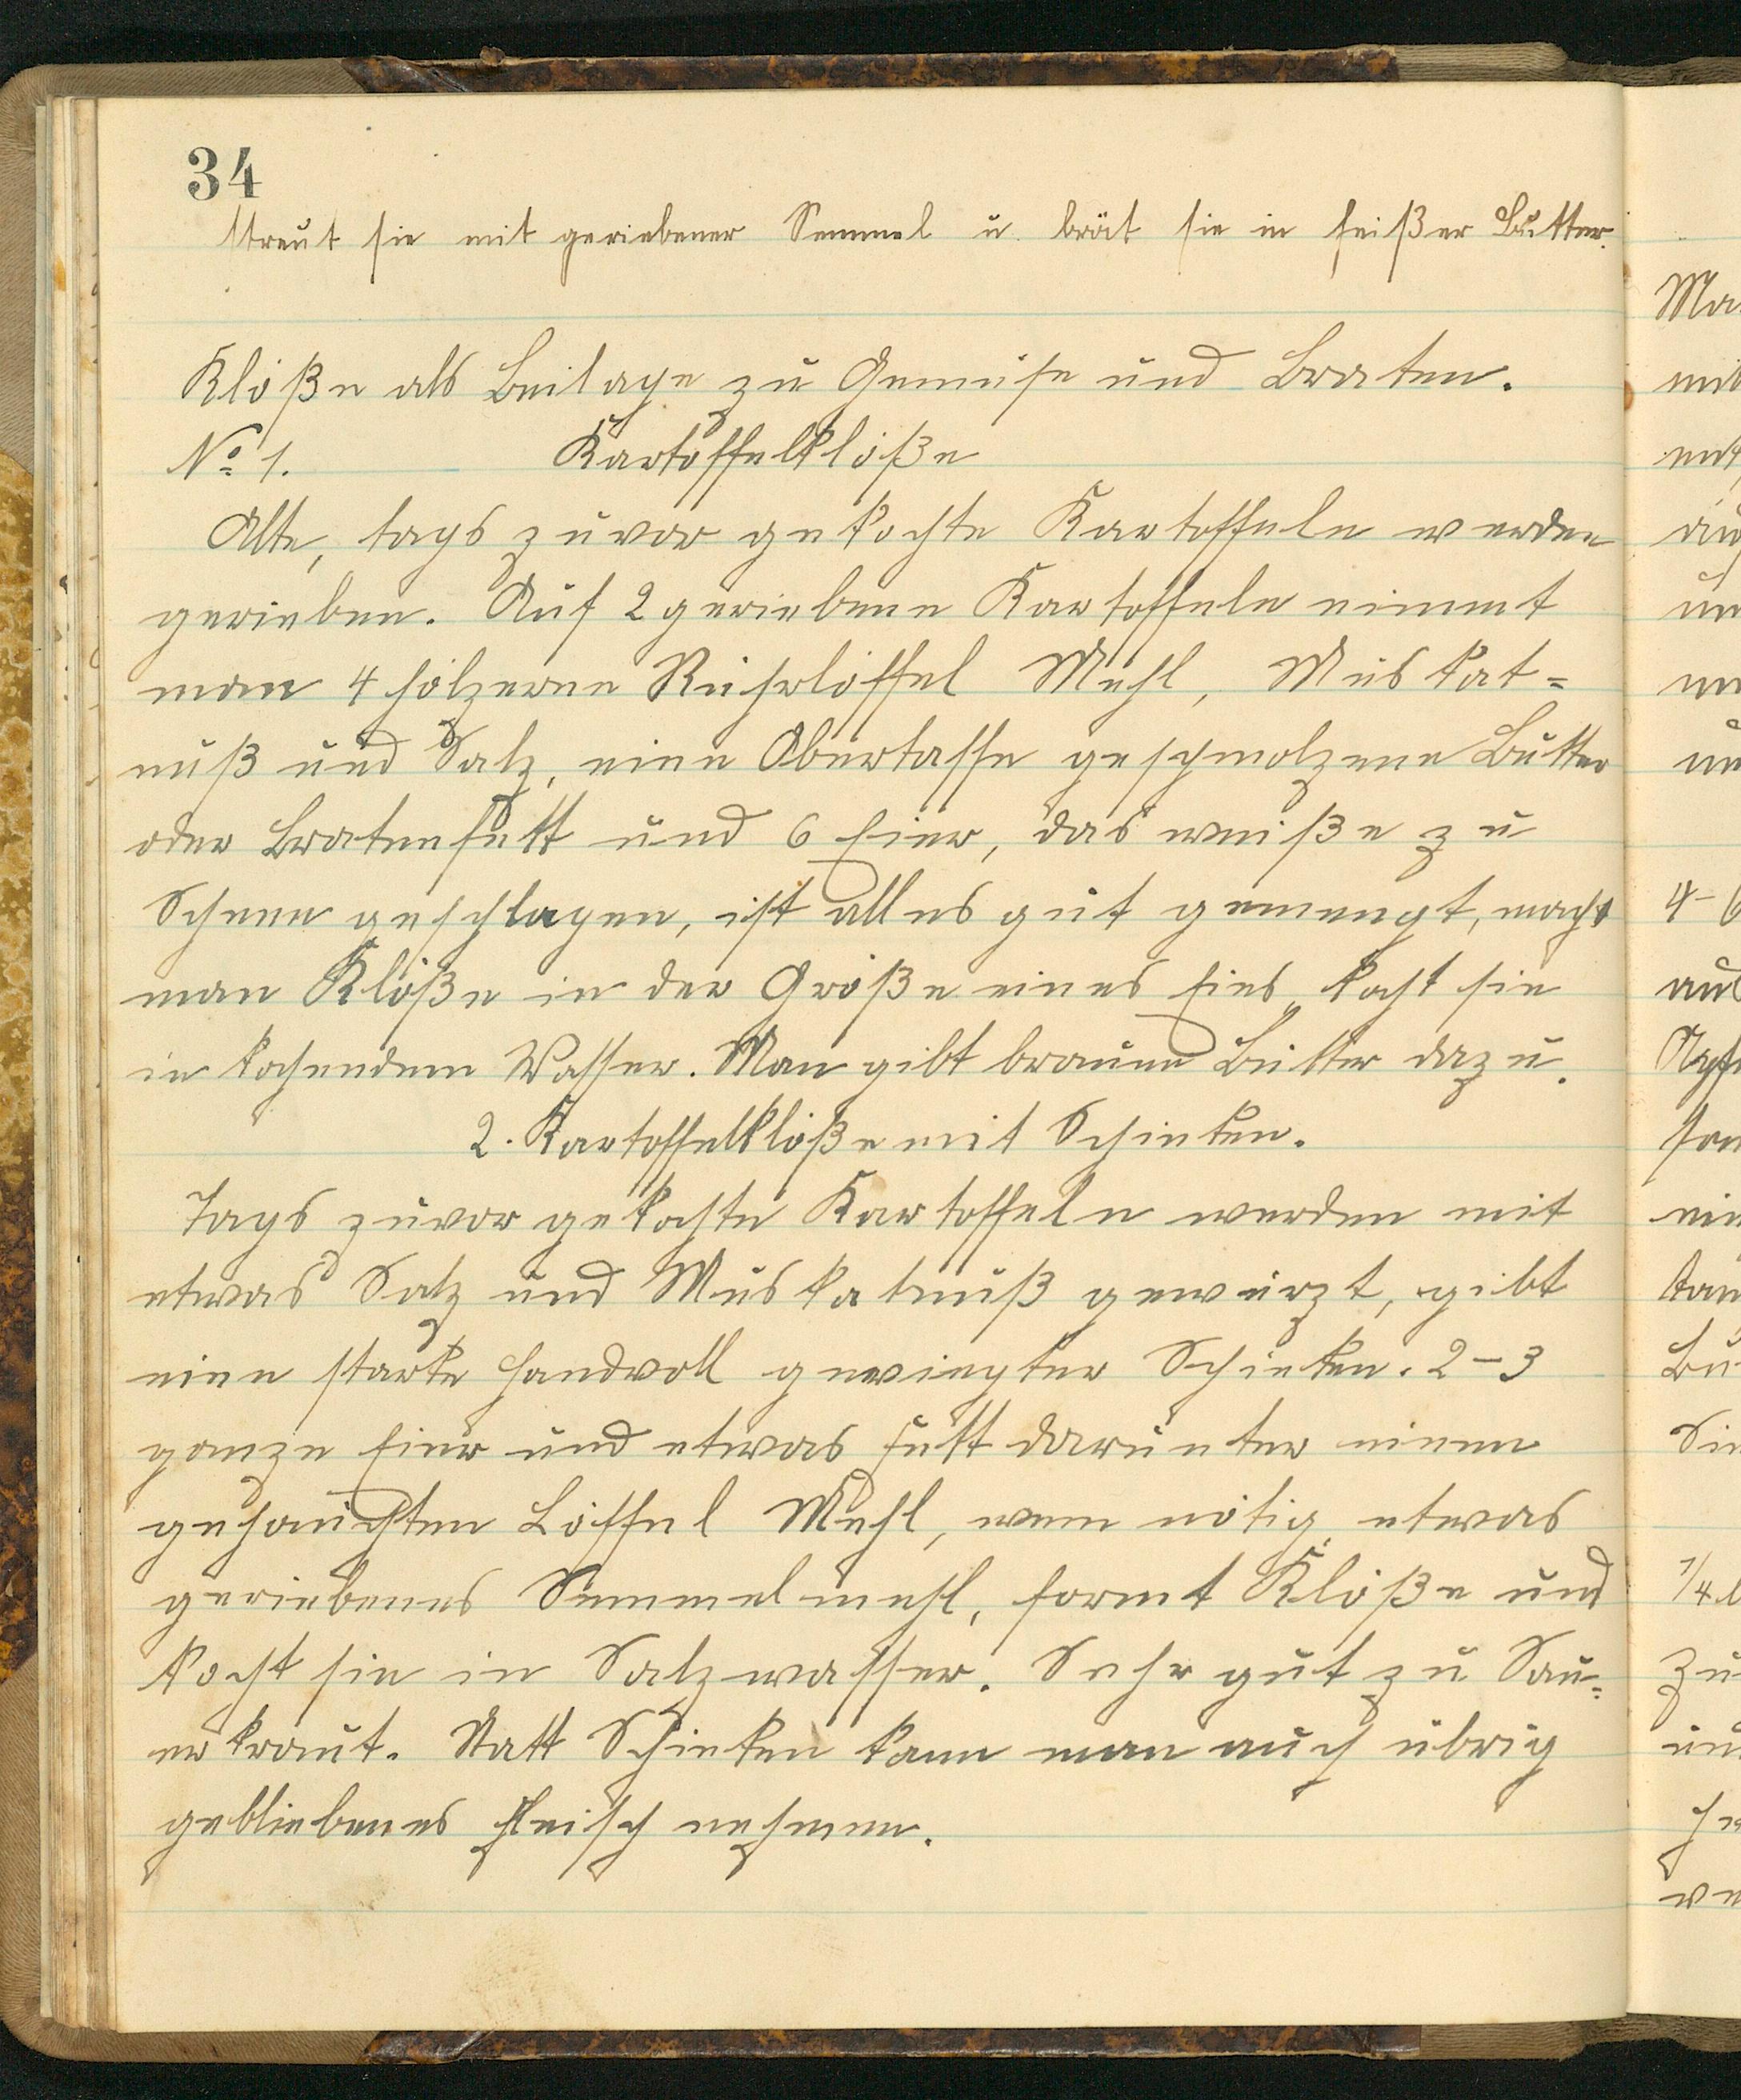 34
streut sie mit geriebener Semmel u. brät sie in heißer Butter.
Klöße als Beilage zu Gemüse und Braten.
No 1. Kartoffelklöße
Alte, tags zuvor gekochte Kartoffeln werden
gerieben. Auf 2 geriebene Kartoffeln nimmt
man 4 hölzerne Rührlöffel Mehl, Muskat=
nuß und Salz, eine Obertasse geschmolzene Butter
oder Bratenfett und 6 Eier, das weiße zu
Schnee geschlagen, ist alles gut gemengt, macht
man Klöße in der Größe eines Eies, kocht sie
in kochendem Wasser. Man gibt braune Butter dazu.
2. Kartoffelklöße mit Schinken.
Tags zuvor gekochte Kartoffeln werden mit
etwas Salz und Muskatnuß gewürzt, gibt
eine starke Handvoll gewiegter Schinken. 2–3
ganze Eier und etwas Fett darunter einen
gehäuften Löffel Mehl, wenn nötig, etwas
geriebenes Semmelmehl, formt Klöße und
kocht sie in Salzwasser. Sehr gut zu Sau=
erkraut. Statt Schinken kann man auch übrig
gebliebenes Fleisch nehmen.